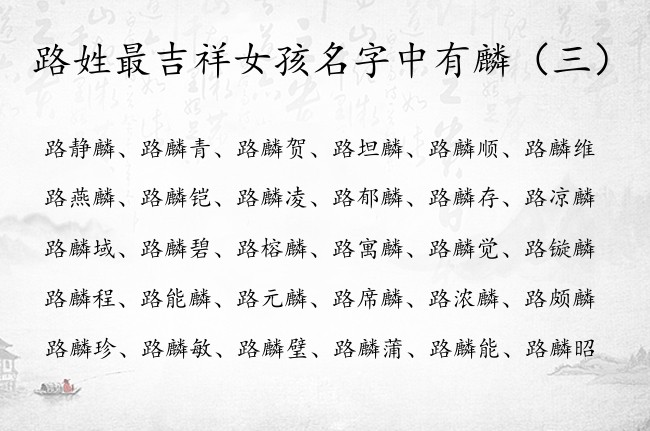 路姓最吉祥女孩名字中有麟（三）
路静麟、路麟青、路麟贺、路坦麟、路麟顺、路麟维
路燕麟、路麟铠、路麟凌、路郁麟、路麟存、路凉麟
路麟域、路麟碧、路榕麟、路寓麟、路麟觉、路镟麟
路麟程、路能麟、路元麟、路席麟、路浓麟、路颇麟
路麟珍、路麟敏、路麟璧、路麟蒲、路麟能、路麟昭